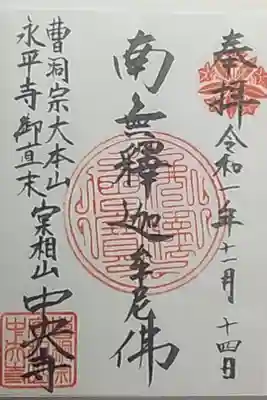 奉拝 令和一年十一月十四日
南無釋迦牟尼佛
曹洞宗大本山
永平寺御直末 宗相山 中央寺